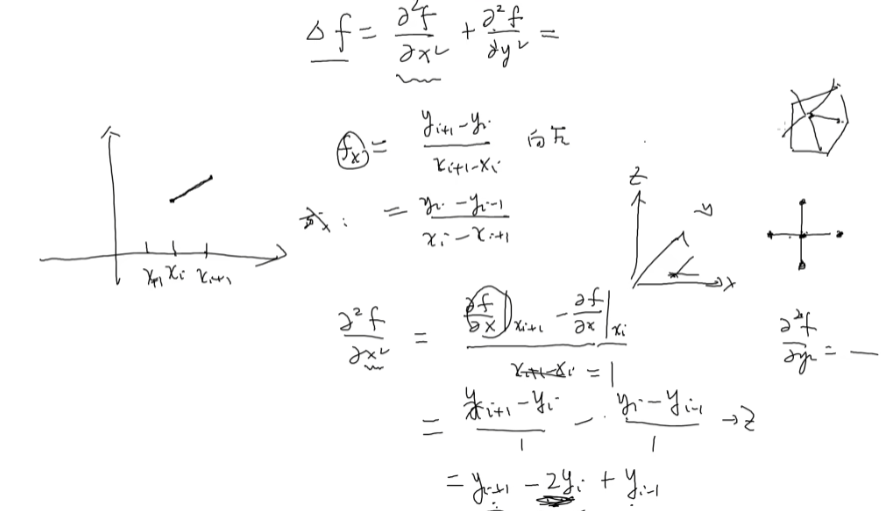 Δf = ∂²f/∂x² + ∂²f/∂y² =
f_x = (y_{i+1} - y_i)/(x_{i+1} - x_i) 向右
= (y_i - y_{i-1})/(x_i - x_{i+1})
z
y
x
x_{i-1} x_i x_{i+1}
∂²f/∂x² = (∂f/∂x|_{x_{i+1}} - ∂f/∂x|_{x_i})/(x_{i+1} - x_i = 1)
∂²f/∂y² = —
= (y_{i+1} - y_i)/1 - (y_i - y_{i-1})/1 → z
= y_{i+1} - 2y_i + y_{i-1}